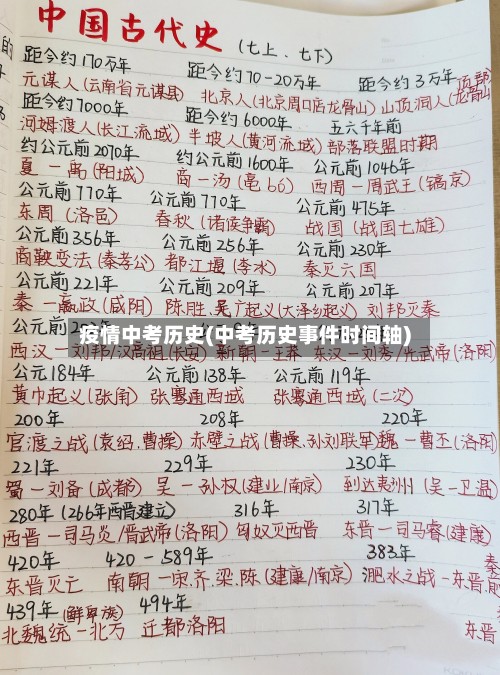 中国古代史(七上、七下)
的
距今约170万年 距今约70-20万年 距今约3万年
元谋人(云南省元谋县) 北京人(北京周口店龙骨山) 山顶洞人(龙骨山顶部)
距今约7000年 距今约6000年 五六千年前
河姆渡人(长江流域) 半坡人(黄河流域) 部落联盟时期
约公元前2070年 约公元前1600年 公元前1046年
夏一禹(阳城) 商一汤(亳 bó) 西周一周武王(镐京)
公元前770年 公元前770年 公元前475年
东周(洛邑) 春秋(诸侯争霸) 战国(战国七雄)
公元前356年 公元前256年 公元前230年
商鞅变法(秦孝公) 都江堰(李冰) 秦灭六国
公元前221年 公元前209年 公元前207年
秦一嬴政(咸阳) 陈胜、吴广起义(大泽乡起义) 刘邦灭秦
公元前
疫情中考历史(中考历史事件时间轴)
西汉一刘邦/汉高祖(长安) 新朝一王莽 东汉一刘秀/光武帝(洛阳)
公元184年 公元前138年 公元前119年
黄巾起义(张角) 张骞通西域 张骞通西域(二次)
200年 208年 220年
官渡之战(袁绍.曹操) 赤壁之战(曹操、孙刘联军) 魏一曹丕(洛阳)
221年 229年 230年
蜀一刘备(成都) 吴一孙权(建业/南京) 到达夷洲(吴一卫温)
280年(266年西晋建立) 316年 317年
西晋一司马炎/晋武帝(洛阳) 匈奴灭西晋 东晋一司马睿(建康)
420年 420-589年 383年
东晋灭亡 南朝一宋.齐.梁.陈(建康/南京) 淝水之战-东晋.前秦
439年(鲜卑族) 494年
北魏统一北方 迁都洛阳 东晋